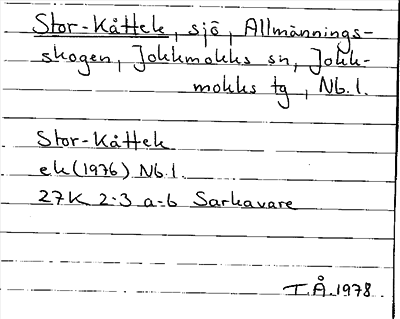 Stor-Kåttek, sjö, Allmännings-
skogen, Jokkmokks sn, Jokk-
mokks tg, Nb.l.
Stor-Kåttek
ek (1976) Nb.l.
27K 2-3 a-b Sarkavare
T.Å.1978.